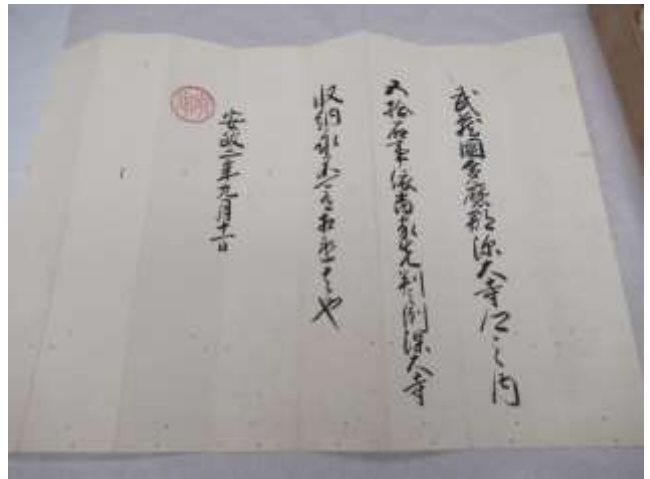 武蔵國多磨郡深大寺領之内
五拾石事依當家先判之例深大寺
収納永不可有相違者也
安政二年九月十一日